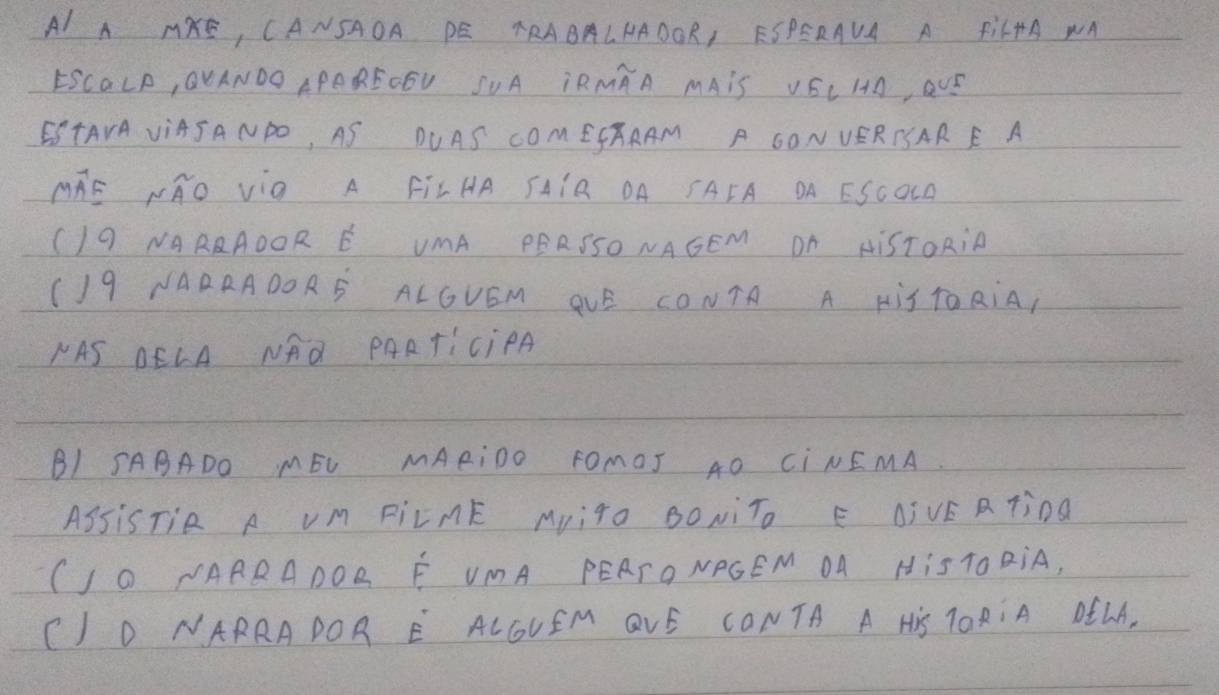 A) A MÃE, CANSADA DE TRABALHADOR, ESPERAVA A FILHA NA
ESCOLA, QUANDO APARECEU SUA IRMÃA MAIS VELHA, QUE
ESTAVA VIAJANDO, AS DUAS COMEÇARAM A CONVERSSAR E A
MÃE NÃO VIO A FILHA SAÍR DA SALA DA ESCOLA
( ) O NARRADOR É UMA PERSSONAGEM DA HISTORIA
( ) O NARRADOR É ALGUEM QUE CONTA A HISTORIA,
MAS DELA NÃO PARTÍCIPA
B) SABADO MEU MARIDO FOMOS AO CINEMA.
ASSISTIR A UM FILME MUITO BONITO E DIVERTIDO
( ) O NARRADOR É UMA PERSONAGEM DA HISTORIA.
( ) O NARRADOR É ALGUEM QUE CONTA A HISTORIA DELA.